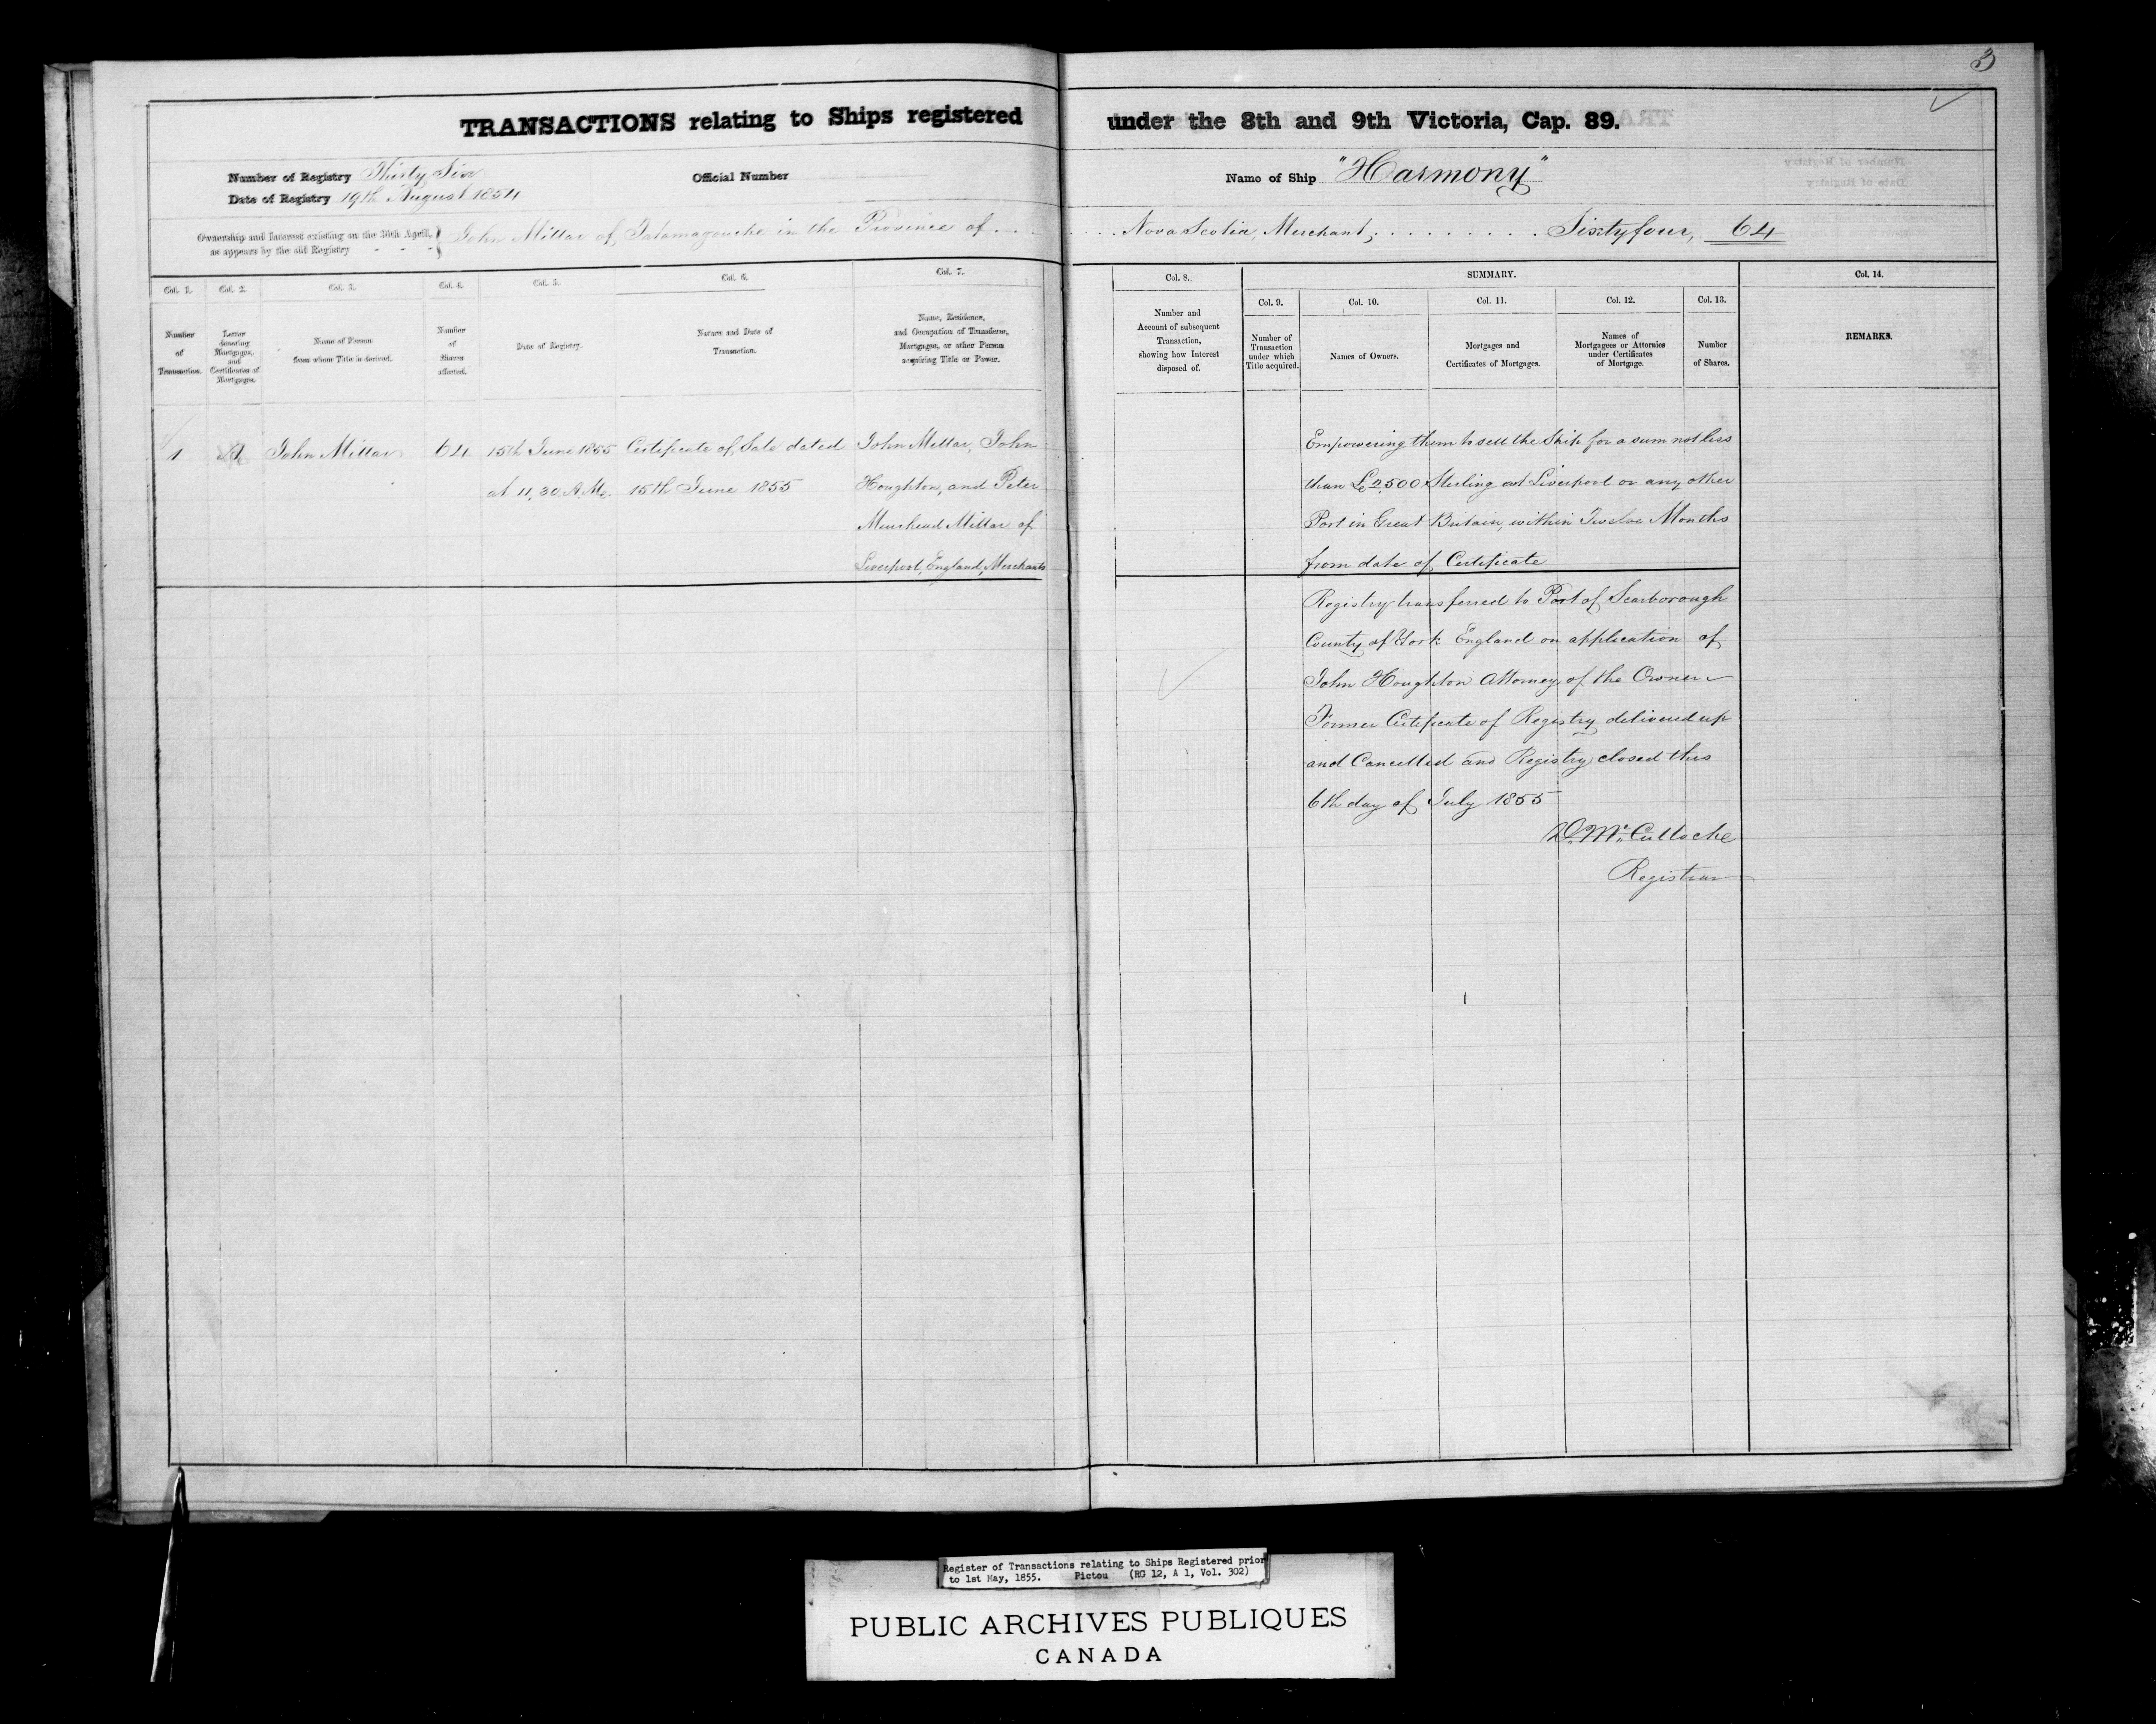 3
TRANSACTIONS relating to Ships registered under the 8th and 9th Victoria, Cap. 89.
Number of Registry Thirty Six
Official Number
Name of Ship "Harmony"
Date of Registry 19th August 1854
Ownership and Interest existing on the 30th April, as appears by the old Registry
John Millar of Tatamagouche in the Province of . . . . . . Nova Scotia, Merchant; . . . . . . . . . Sixtyfour, 64
Col. 1.
Number
of
Transaction.
Col. 2.
Letter
denoting
Mortgages,
and
Certificates of
Mortgages.
Col. 3.
Name of Person
from whom Title is derived.
Col. 4.
Number
of
Shares
affected.
Col. 5.
Date of Registry.
Col. 6.
Nature and Date of
Transaction.
Col. 7.
Name, Residence,
and Occupation of Transferee,
Mortgagee, or other Person
acquiring Title or Power.
Col. 8.
Number and
Account of subsequent
Transaction,
showing how Interest
disposed of.
SUMMARY.
Col. 9.
Number of
Transaction
under which
Title acquired.
Col. 10.
Names of Owners.
Col. 11.
Mortgages and
Certificates of Mortgages.
Col. 12.
Names of
Mortgagees or Attornies
under Certificates
of Mortgage.
Col. 13.
Number
of Shares.
Col. 14.
REMARKS.
1
John Millar
64
15th June 1855
at 11,30 A.M.
Certificate of Sale dated
15th June 1855
John Millar, John
Houghton, and Peter
Muirhead Millar of
Liverpool, England, Merchants
Empowering them to sell the Ship for a sum not less
than £2,500 Sterling at Liverpool or any other
Port in Great Britain, within Twelve Months
from date of Certificate
Registry transferred to Port of Scarborough
County of York England on application of
John Houghton Attorney of the Owner
Former Certificate of Registry delivered up
and Cancelled and Registry closed this
6th day of July 1855
D. McCulloche
Registrar
Register of Transactions relating to Ships Registered prior
to 1st May, 1855. Pictou (RG 12, A 1, Vol. 302)
PUBLIC ARCHIVES PUBLIQUES
CANADA